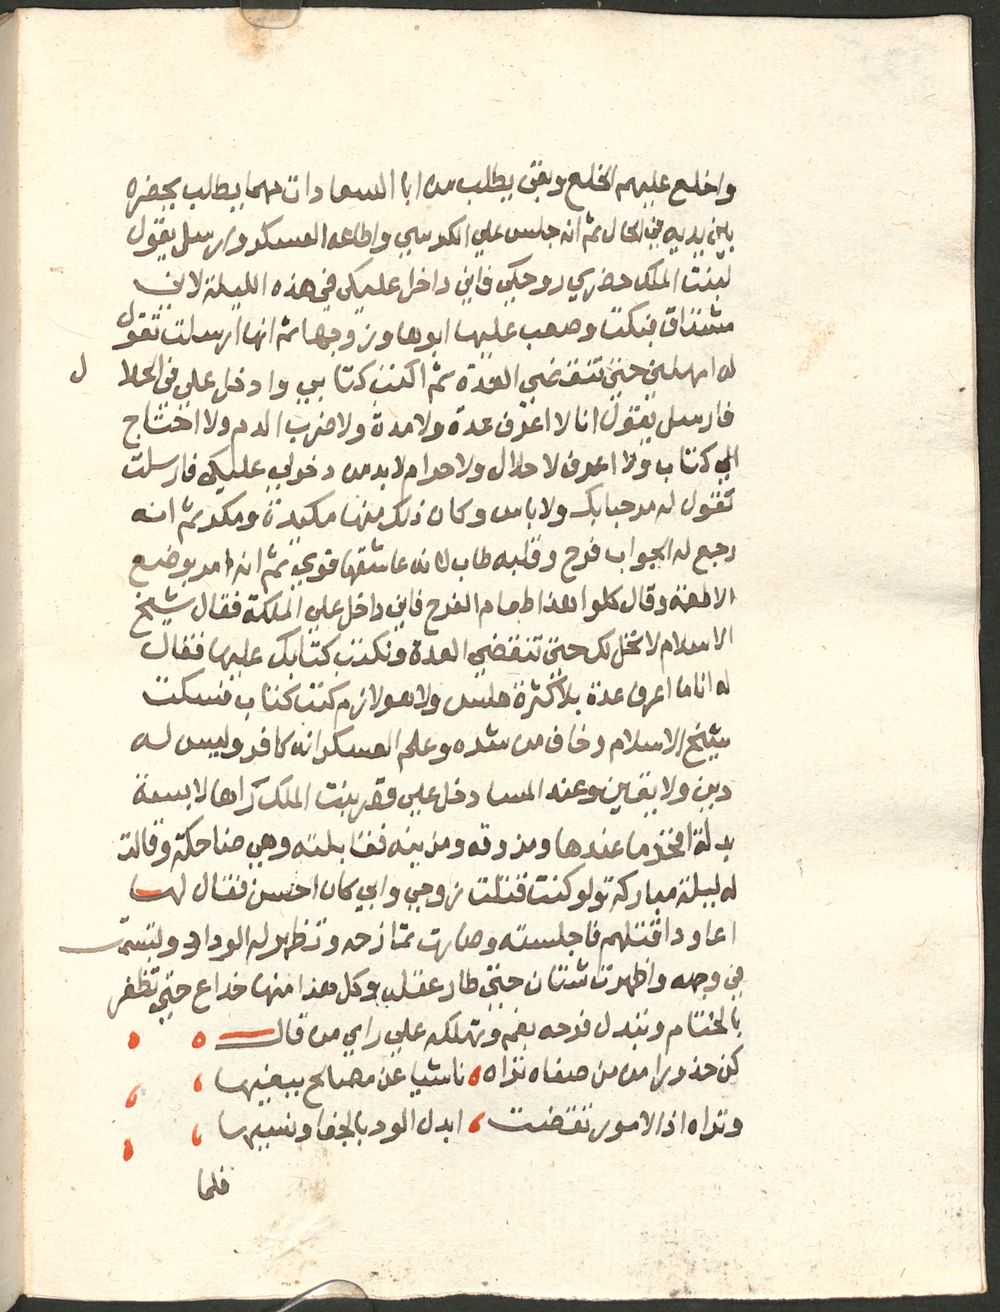 واخلع عليهم الخلع وبقي يطلب من ابا السعادات مهما يطلب يحضره
بين يديه في الحال ثم انه جلس علي الكرسي واطاعه العسكر وارسل يقول
لبنت الملك حضري روحكي فاني داخل عليكي في هذه الليلة لاني
مشتاق فبكت وصعب عليها ابوها وزوجها ثم انها ارسلت تقول
له امهلني حتي تنقضي العدة ثم اكتب كتابي وادخل علي في الحلا ل
فارسل يقول انا لا اعرف عدة ولا مدة ولا ضرب الدم ولا احتاج
الي كتاب ولا اعرف لا حلال ولا حرام لا بد من دخولي عليكي فارسلت
تقول له مرحبا بك ولا باس وكان ذلك منها مكيدة ومكر ثم انه
رجع له الجواب فرح وقلبه طاب لانه عاشقها قوي ثم انه امر بوضع
الاطعنه وقال كلوا هذا طعام الفرح فاني داخل علي الملكة فقال شيخ
الاسلام لا تحل لك حتي تنقضي العدة وتكتب كتابك عليها فقال
له انا ما اعرف عدة بلا كثرة هلس ولا هو لازم كتب كتاب فسكت
شيخ الاسلام وخاف من شره وعلم العسكر انه كافر وليس له
دين ولا يقين وعند المسا دخل علي قصر بنت الملك راها لابسة
بدلة افخر ما عندها ومزوقه ومزينه فقابلته وهي ضاحكة وقالت
له ليلة مباركة ولو كنت قتلت زوجي وابي كان احسن فقال لها
اعاود اقتلهم فاجلسته وصارت تمازحه وتظهر له الوداد وتبتسم
في وجهه واظهرت شنان حتي طار عقله وكل هذا منها خداع حتي تظفر
بالختام وتبدل فرحه بغم وتهلكه علي راي من قال
كن حذورا من من صفاه تراه ، ناشيا عن مصالح يبغيها
وتراه اذا الامور تقضت ، ابدل الود بالجفا وينسيها
فلما